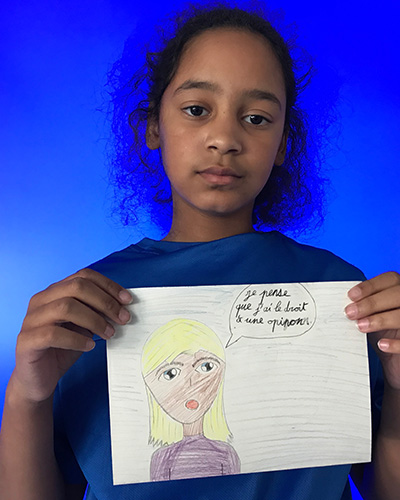 je pense
que j'ai le droit
à une opinion